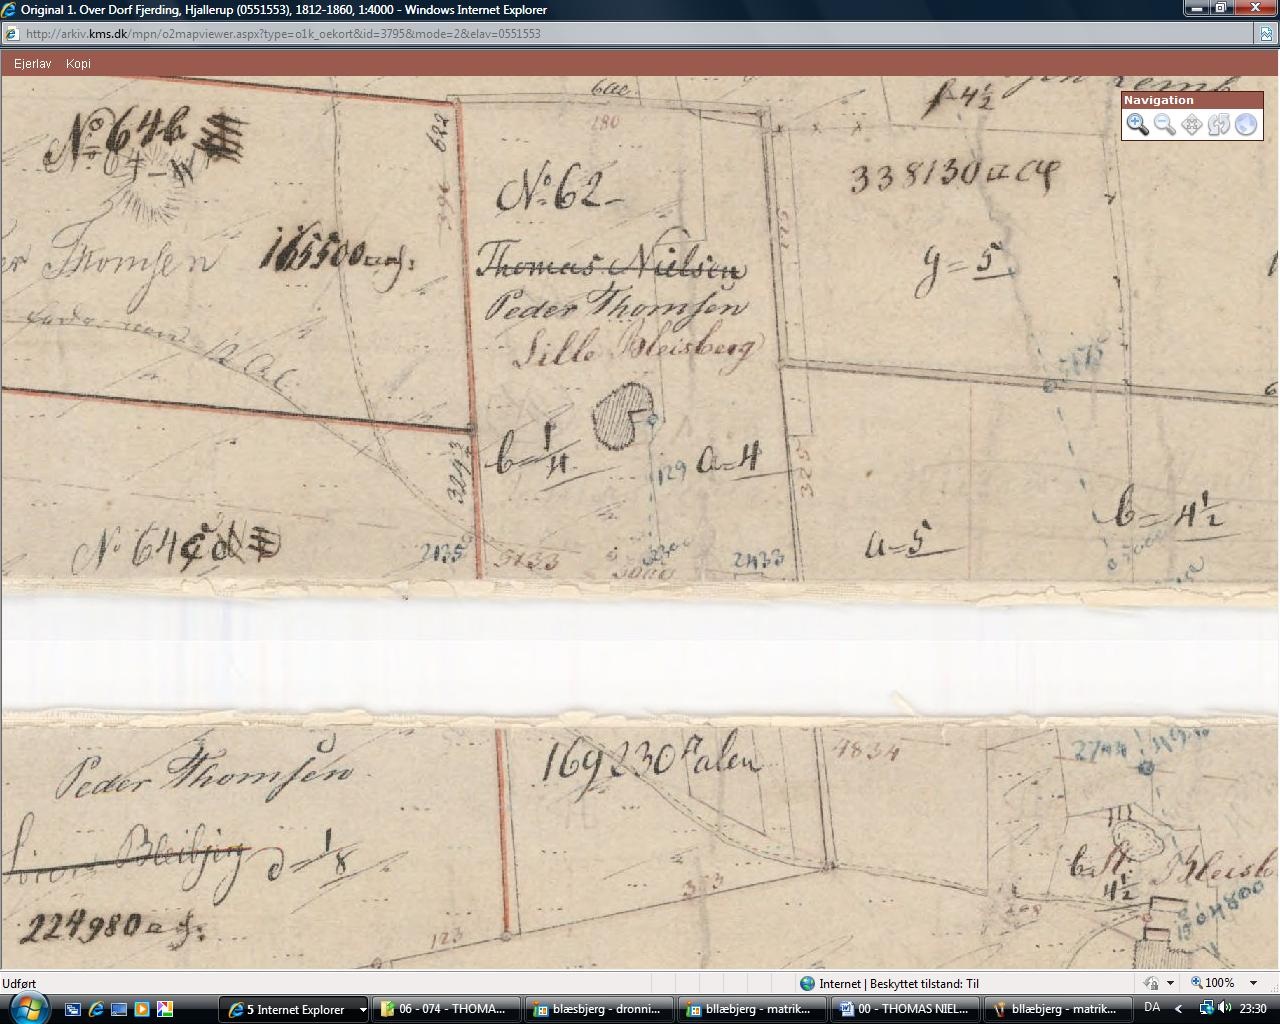 Original 1. Over Dorf Fjerding, Hjallerup (0551553), 1812-1860, 1:4000 - Windows Internet Explorer
http://arkiv.kms.dk/mpn/o2mapviewer.aspx?type=o1k_oekort&id=3795&mode=2&elav=0551553
Ejerlav Kopi
Navigation
No 64b
622
6ac.
180
4½
396
No 62
338130
Thomsen
165500
Thomas Nielsen
Peder Thomsen
Sille Bleisberg
y = 5
b = 1/4
a = 4
129
325
a = 5
b = 4½
No 64
2135
5133
2300
3000
2433
Peder Thomsen
169230 alen
4834
2744
Bleibjerg
d = 1/8
b
4½
224980
353
123
04800
Udført
Internet | Beskyttet tilstand: Til
100%
5 Internet Explorer
06 - 074 - THOMA...
blæsbjerg - dronni...
bllæbjerg - matrik...
00 - THOMAS NIEL...
bllæbjerg - matrik...
DA
23:30